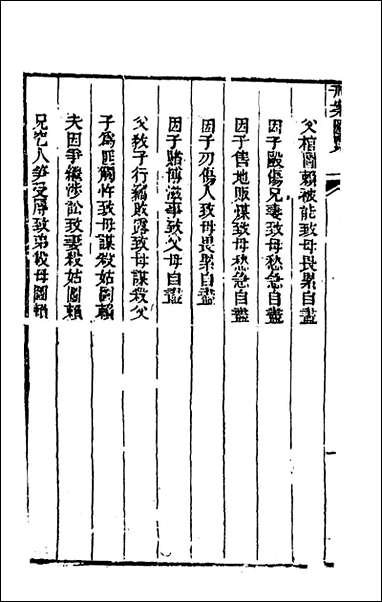 父棺圖賴被訛致母畏累自盡
因子毆傷兄妻致母愁急自盡
因子售地販煤致母愁急自盡
因子刃傷人致母畏累自盡
因子賭博滋事致父母自盡
父教子行竊敗露致母謀殺父
子爲匪觸忤致母謀殺姑圖賴
夫因爭繼涉訟致妻殺姑圖賴
兄乞人筭受辱致弟殺母圖賴